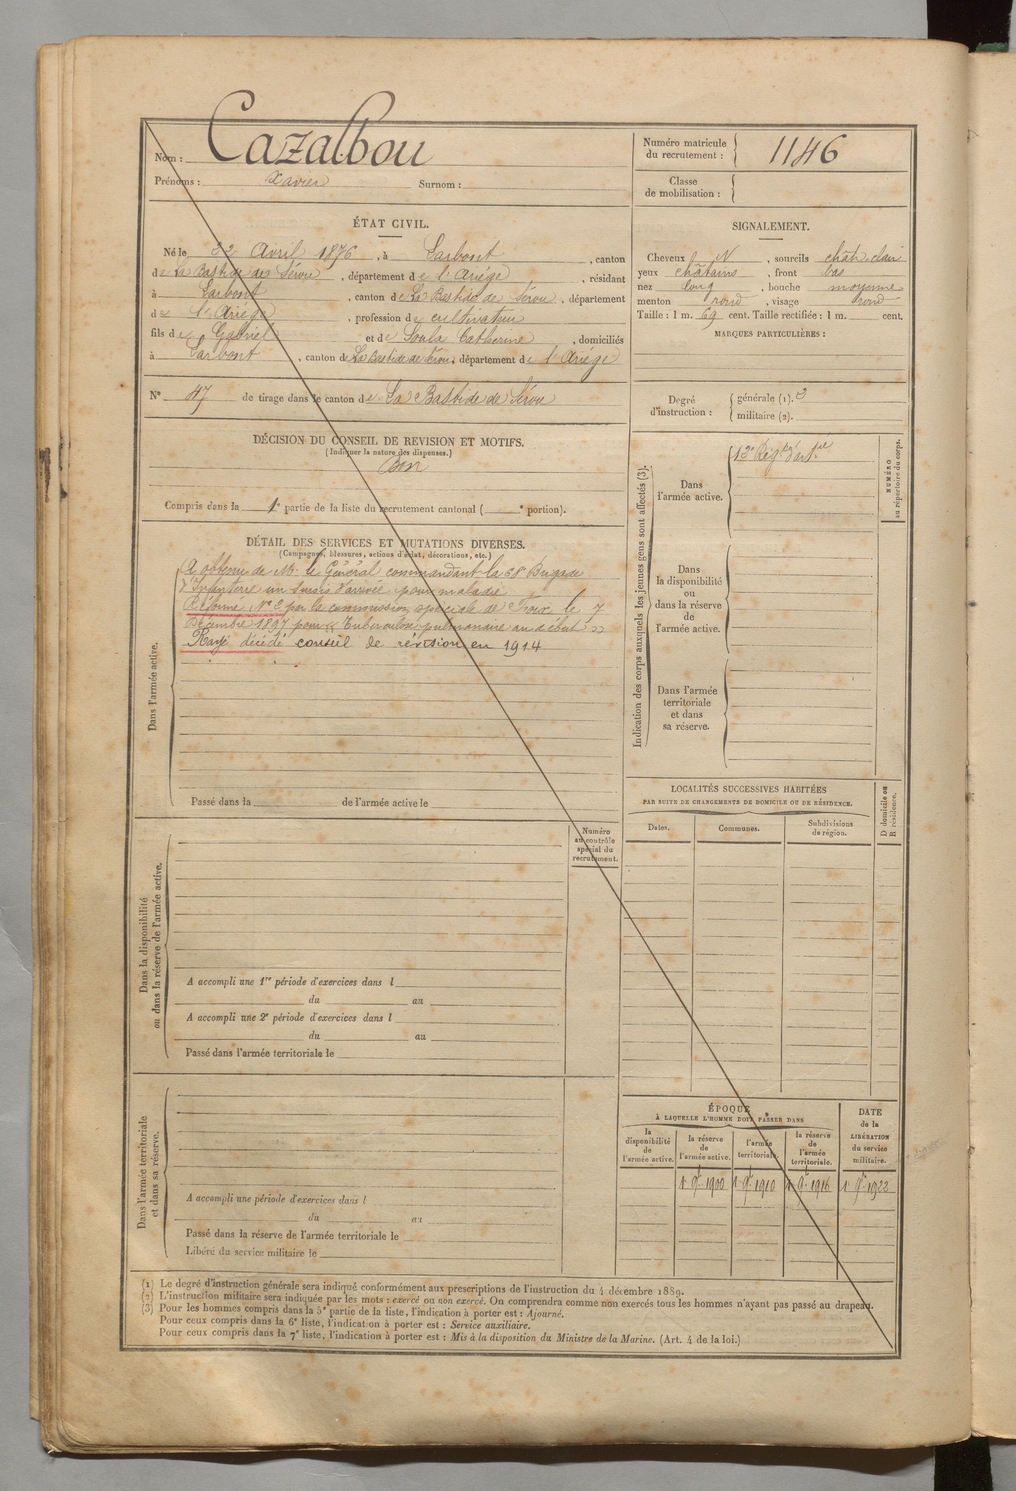 Nom : Cazalbou
Prénoms : Xavier Surnom :
Numéro matricule
du recrutement : 1146
Classe
de mobilisation :
ÉTAT CIVIL.
Né le 22 Avril 1876, à Larbont, canton
de La Bastide de Sérou, département de l'Ariège, résidant
à Larbont, canton de La Bastide de Sérou, département
de l'Ariège, profession de cultivateur
fils de Gabriel et de Soula Catherine, domiciliés
à Larbont, canton de La Bastide de Sérou, département de l'Ariège
N° 47 de tirage dans le canton de La Bastide de Sérou
SIGNALEMENT.
Cheveux N, sourcils chât. clair
yeux châtains, front bas
nez long, bouche moyenne
menton rond, visage rond
Taille : 1 m. 69 cent. Taille rectifiée : 1 m. cent.
MARQUES PARTICULIÈRES :
Degré
d'instruction :
générale (1). 3
militaire (2).
DÉCISION DU CONSEIL DE REVISION ET MOTIFS.
(Indiquer la nature des dispenses.)
Bon
Compris dans la 1e partie de la liste du recrutement cantonal ( e portion).
DÉTAIL DES SERVICES ET MUTATIONS DIVERSES.
(Campagnes, blessures, actions d'éclat, décorations, etc.)
Dans l'armée active.
A obtenu de M. le Général commandant la 68 Brigade
d'Infanterie un sursis d'arrivée pour maladie
Réformé N° 2 par la commission spéciale de Foix le 7
Décembre 1897 pour "Tuberculose pulmonaire au début"
Rayé décédé conseil de révision en 1914
Passé dans la de l'armée active le
Indication des corps auxquels les jeunes gens sont affectés (3).
NUMÉRO
au répertoire du corps.
Dans
l'armée active.
Régt d'artie
Dans
la disponibilité
ou
dans la réserve
de
l'armée active.
Dans l'armée
territoriale
et dans
sa réserve.
LOCALITÉS SUCCESSIVES HABITÉES
PAR SUITE DE CHANGEMENTS DE DOMICILE OU DE RÉSIDENCE.
Dates.
Communes.
Subdivisions
de région.
D domicile ou
R résidence.
Dans la disponibilité
ou dans la réserve de l'armée active.
Numéro
au contrôle
spécial du
recrutement.
A accompli une 1re période d'exercices dans l
du au
A accompli une 2e période d'exercices dans l
du au
Passé dans l'armée territoriale le
Dans l'armée territoriale
et dans sa réserve.
A accompli une période d'exercices dans l
du au
Passé dans la réserve de l'armée territoriale le
Libéré du service militaire le
ÉPOQUE
À LAQUELLE L'HOMME DOIT PASSER DANS
la
disponibilité
de
l'armée active.
la réserve
de
l'armée active.
l'armée
territoriale.
la réserve
de
l'armée
territoriale.
DATE
de la
LIBÉRATION
du service
militaire.
1 9bre 1900 1 9bre 1910 1 9bre 1916 1 9bre 1922
(1) Le degré d'instruction générale sera indiqué conformément aux prescriptions de l'instruction du 4 décembre 1889.
(2) L'instruction militaire sera indiquée par les mots : exercé ou non exercé. On comprendra comme non exercés tous les hommes n'ayant pas passé au drapeau.
(3) Pour les hommes compris dans la 5e partie de la liste, l'indication à porter est : Ajourné.
Pour ceux compris dans la 6e liste, l'indication à porter est : Service auxiliaire.
Pour ceux compris dans la 7e liste, l'indication à porter est : Mis à la disposition du Ministre de la Marine. (Art. 4 de la loi.)